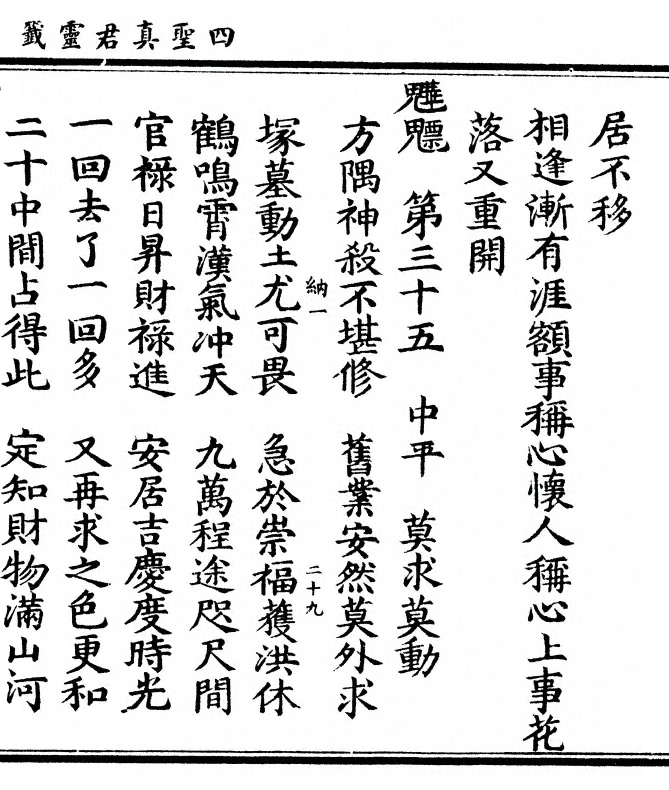 四聖真君靈籤
居不移
相逢漸有涯額事稱心懷人稱心上事花
落又重開
魓魒　第三十五　中平　莫求莫動
方隅神殺不堪修　舊業安然莫外求
納一　二十九
塚墓動土尤可畏　急於崇福獲洪休
鶴鳴霄漢氣冲天　九萬程途咫尺間
官祿日昇財祿進　安居吉慶度時光
一回去了一回多　又再求之色更和
二十中間占得此　定知財物滿山河